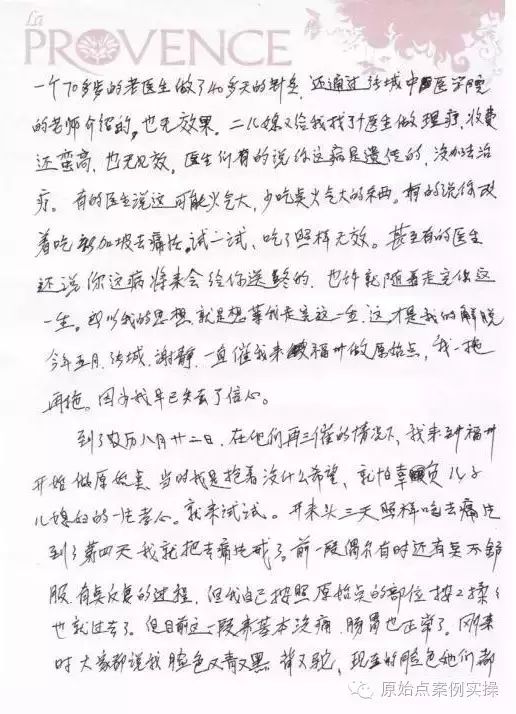 La
PROVENCE
一个70多岁的老医生做了40多天的针灸，还通过张城中医学院
的老师介绍的，也无效果。二儿媳又给我找了医生做理疗，收费
还蛮高，也无见效，医生们有的说你这病是遗传的，没办法治
疗。有的医生说这可能火气大，少吃点火气大的东西。有的说你改
着吃新加坡去痛片，试一试，吃了照样无效。甚至有的医生
还说你这病将来会给你送终的，也许就随着走完你这
一生。所以我的思想就是想等我走完这一生，这才是我的解脱
今年五月，张城、谢静一直催我来福州做原始点，我一拖
再拖。因为我早已失去了信心。
到了农历八月廿二日，在他们再三催的情况下，我来到福州
开始做原始点，当时我是抱着没什么希望，就怕辜负儿子
儿媳妇的一片孝心。就来试试。开来头三天照样吃去痛片
到了第四天我就把去痛片戒了。前一段偶尔有时还有点不舒
服，有点反复的过程，但我自己按照原始点的部位按按揉揉
也就过去了。但目前这一段养基本没痛，肠胃也正常了。刚来
时大家都说我脸色又青又黑，背又驼，现在的脸色她们都
原始点案例实操